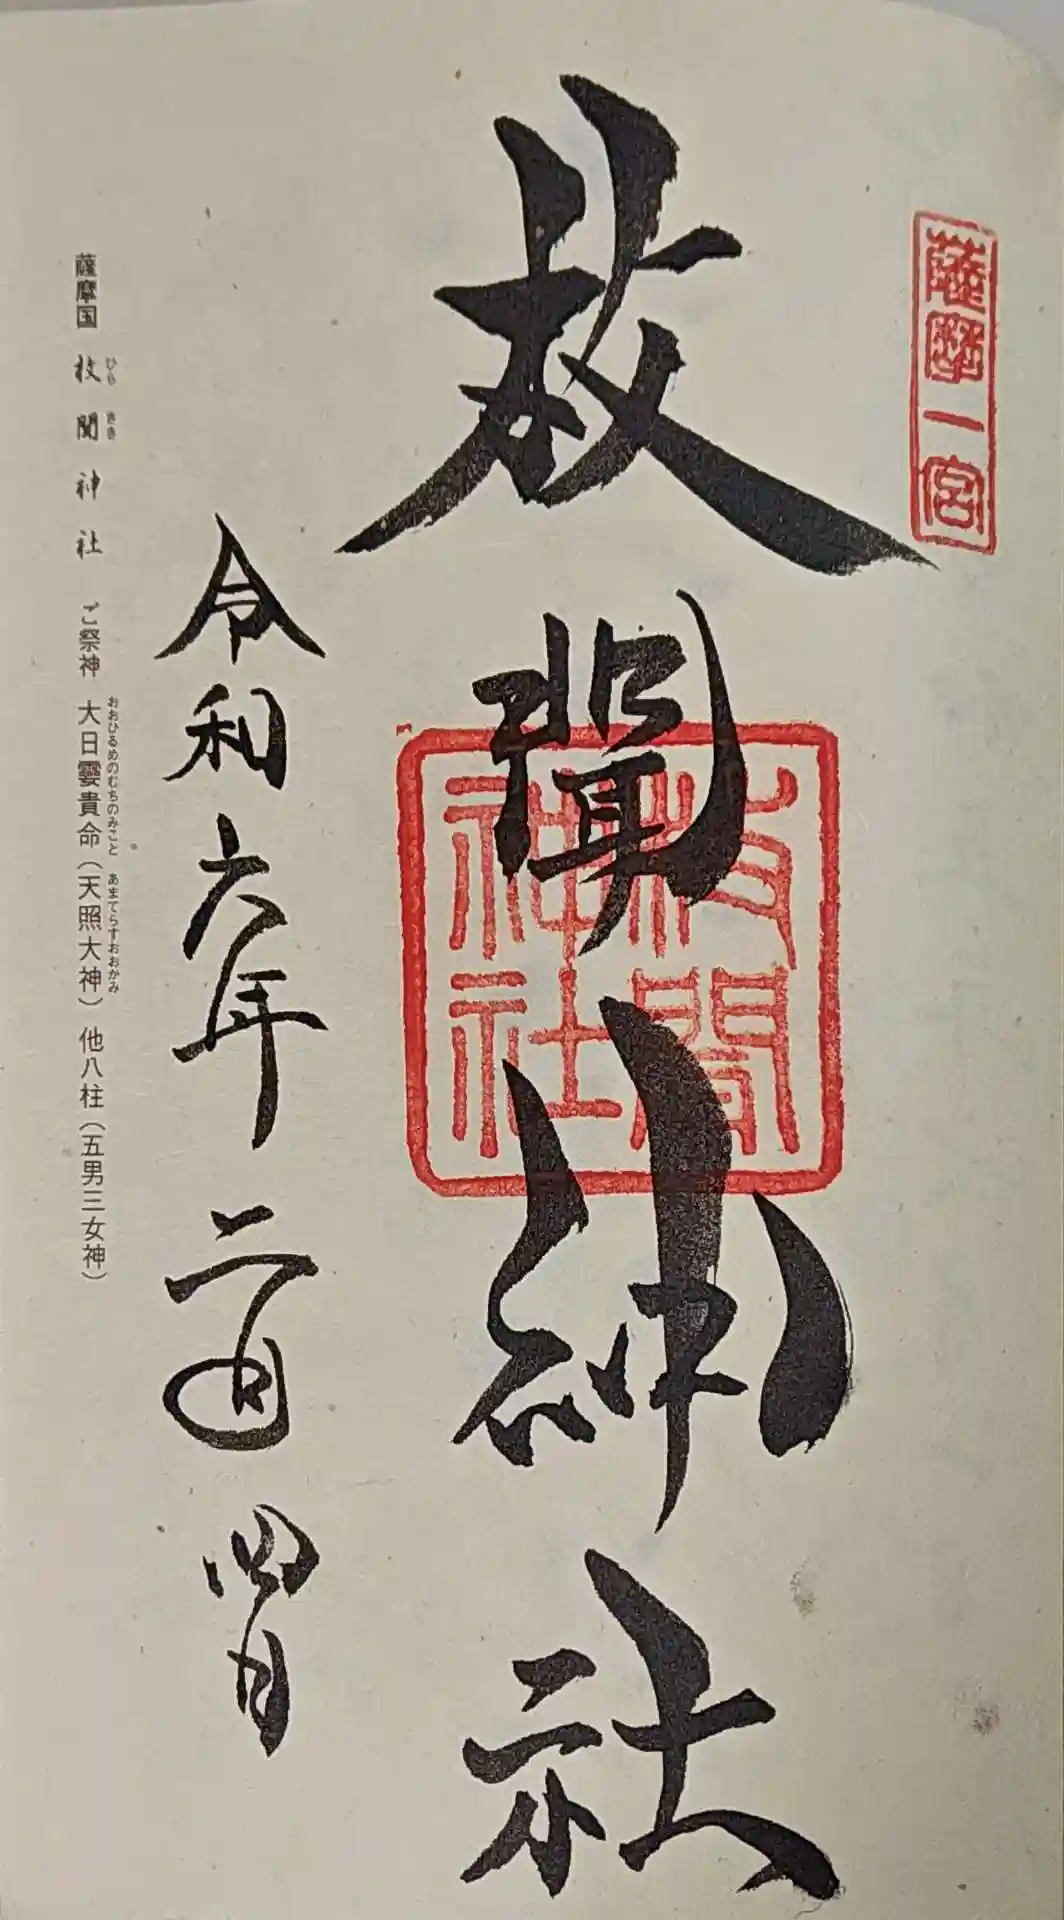 薩摩一宮
枚聞神社
枚聞神社
令和六年二月四日
薩摩国 枚聞神社 ご祭神 大日孁貴命（天照大神）他八柱（五男三女神）
ひら きき おおひるめのむちのみこと あまてらすおおかみ